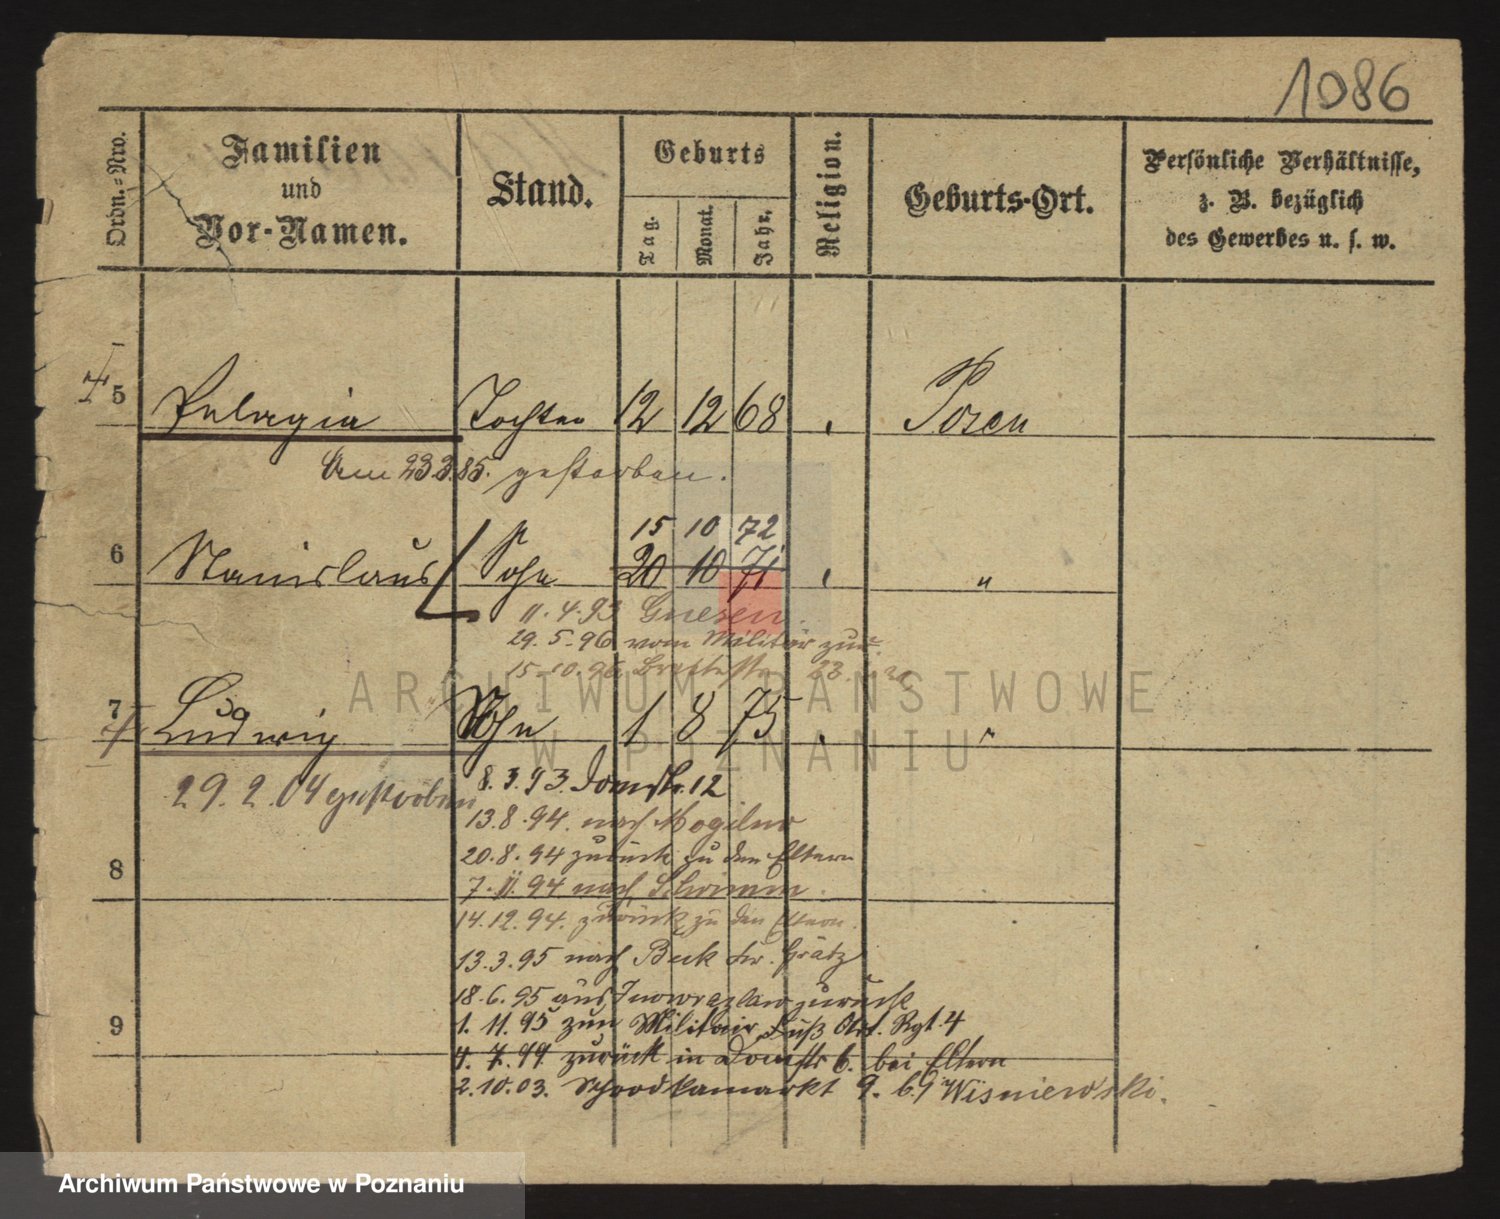 1086
Ordn.=Nro.
Familien
und
Vor-Namen.
Stand.
Geburts
Tag.
Monat.
Jahr.
Religion.
Geburts-Ort.
Persönliche Verhältnisse,
z. B. bezüglich
des Gewerbes u. s. w.
5 Pelagia Tochter 12 12 68 Posen
Am 23.3.85. gestorben.
15 10 72
6 Stanislaus Sohn 20 10 71 "
11.4.93 Gnesen.
29.5.96 vom Militär zur.
15-10.96
7 Ludwig Sohn 1 8 75 "
29.2.04 gestorben
8.3.93. Domstr. 12
13.8.94. nach Mogilno
20.8.94 zurück zu den Eltern
8
7.11.94 nach Schrimm.
14.12.94. zurück zu den Eltern.
13.3.95 nach Buk Kr. Grätz
18.6.95 aus Inowrazlaw zurück
9
1.11.95 zum Militair, Fuß Art. Rgt. 4
4.7.99 zurück in Domstr 6. bei Eltern
2.10.03. Schrodkamarkt 9. b. Wisniewski.
ARCHIWUM PAŃSTWOWE
W POZNANIU
Archiwum Państwowe w Poznaniu